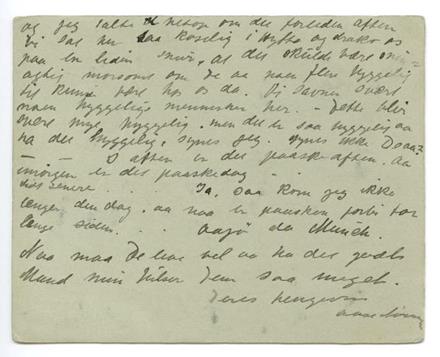 og jeg talte netop om det forleden aften
vi sad her saa koselig i hytta og drakk os
paa en liden snur, at det skulde være
morsomt om de aa naan flere hyggelig
til kunne være hos os da. Vi savner svært
naan hyggelige mennesker her. - Dette blir
svære mye hyggelig. men det er saa hyggelig aa
ha det hyggelig, synes jeg. synes ikke De aa?
- - I aften er det paaskeaften. aa
imorgen er det paaskedag - - .
senere . . . Ja, saa kom jeg ikke
længer den dag. aa naa er paasken forbi for
længe siden. . . da Munch.
Naa maa De leve vel aa ha det godt
Mand min hilser Dem saa meget.
Deres hengivne